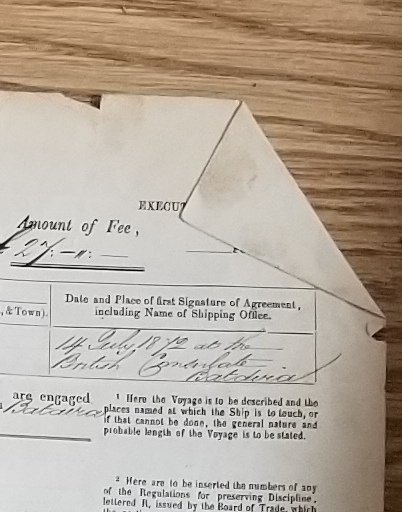 EXECUT
Amount of Fee,
£ 2/:-":-
, & Town).
Date and Place of first Signature of Agreement,
including Name of Shipping Office.
14 July 1872 at the
British Consulate
Batavia
are engaged
Batavia
¹ Here the Voyage is to be described and the
places named at which the Ship is to touch, or
if that cannot be done, the general nature and
probable length of the Voyage is to be stated.
² Here are to be inserted the numbers of any
of the Regulations for preserving Discipline,
lettered R, issued by the Board of Trade, which